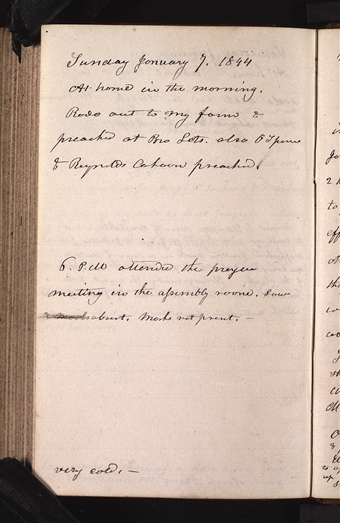 Sunday January 7. 1844
At home in the morning.
Rode out to my farm &
preached at Bro Lots. also O Spence
& Reynolds Cahoon preached.
6. P.M attended the prayer
meeting in the assembly room. Law
absent. Marks not present. —
very cold. —